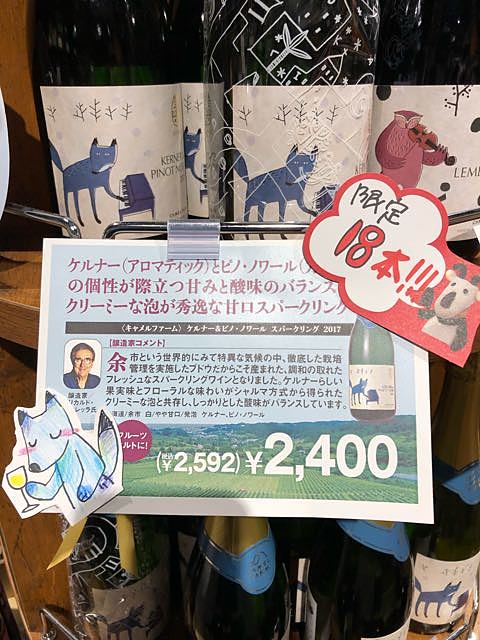 KERNER
PINOT N
LEM
限定
18本!!!
ケルナー(アロマティック)とピノ・ノワール(
の個性が際立つ甘みと酸味のバランス
クリーミーな泡が秀逸な甘口スパークリング
〈キャメルファーム〉ケルナー&ピノ・ノワール スパークリング 2017
[醸造家コメント]
余市という世界的にみて特異な気候の中、徹底した栽培
管理を実施したブドウだからこそ産まれた、調和の取れた
フレッシュなスパークリングワインとなりました。ケルナーらしい
果実味とフローラルな味わいがシャルマ方式から得られた
クリーミーな泡と共存し、しっかりとした酸味がバランスしています。
醸造家
リカルド・
レッラ氏
海道/余市 白/やや甘口/発泡 ケルナー、ピノ・ノワール
フルーツ
ルトに!
(税込¥2,592) ¥2,400